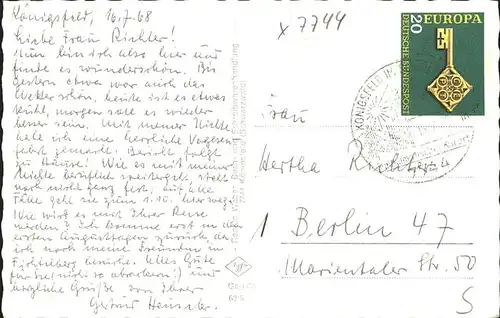 Königsfeld, 16.7.68
Liebe Frau Richter!
Nun bin ich also hier und
finde es wunderschön. Bis
gestern etwa war auch das
Wetter schön, heute ist es etwas
kühl, morgen soll es wieder
besser sein. Mit meiner Nichte
habe ich eine herrliche Vogesen-
fahrt gemacht. Bericht folgt
zu Hause! Wie es mit meiner
Nichte beruflich weitergeht, steht
noch nicht ganz fest, auf alle
Fälle geht sie zum 1.10. hier weg.
Wie wird es mit Ihrer Reise
werden? Ich komme erst in den
ersten Augusttagen zurück, da
ich noch meine Freundin in
besuche. Alles Gute
für Sie (nicht so abrackern!) und
herzliche Grüße von Ihrer
Gertrud
x 7744
EUROPA
20
DEUTSCHE BUNDESPOST
KÖNIGSFELD IM
Frau
Hertha Richter
1 Berlin 47
Marientaler Str. 50
S